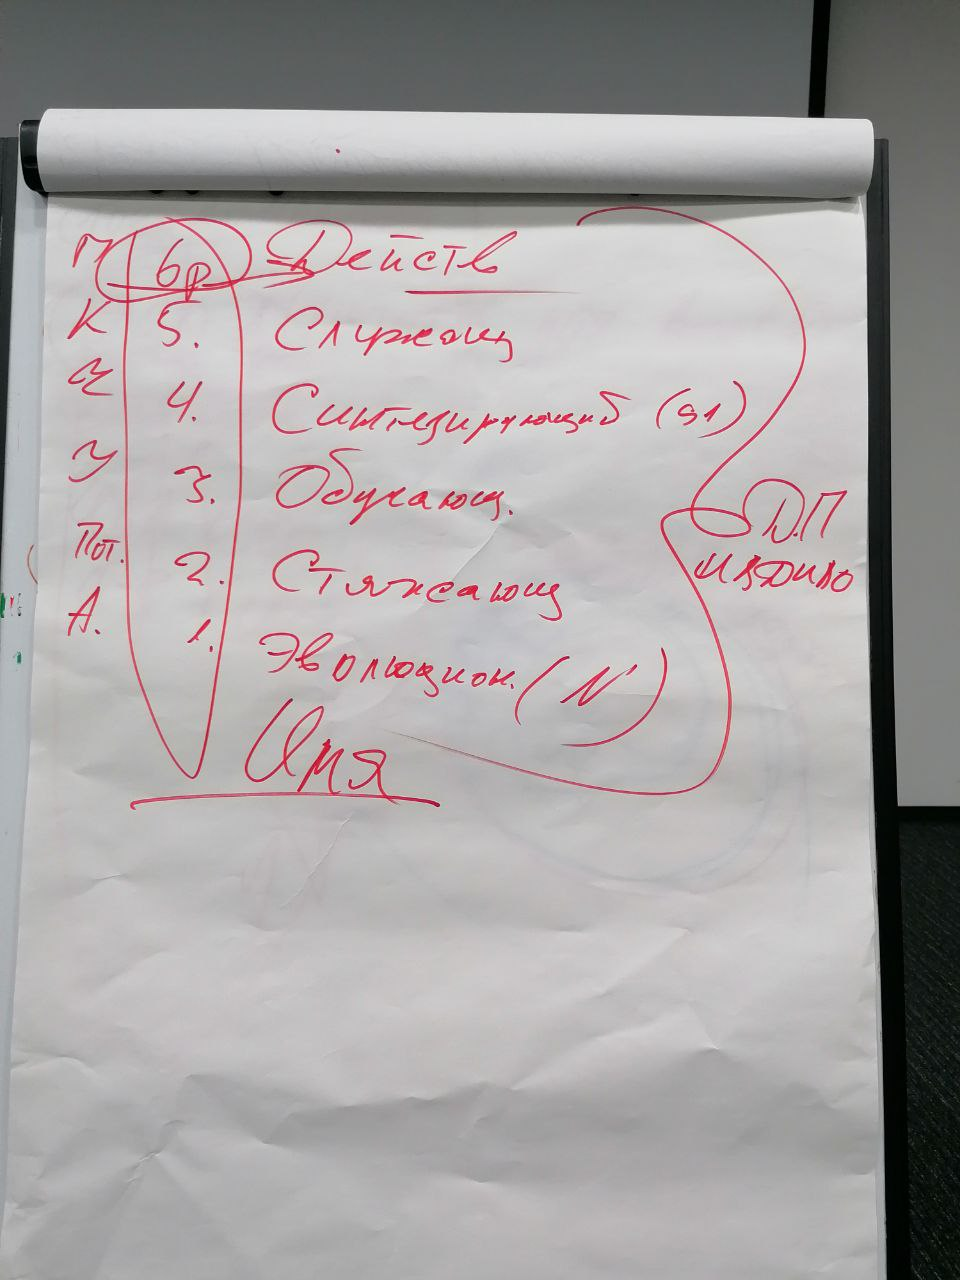 П 6р Действ
К 5. Служащ
Ч 4. Синтезирующий (91)
У 3. Обучающ.
Пот. 2. Стяжающ
А. 1. Эволюцион. (N)
Имя
Д.П
ИВДИВО